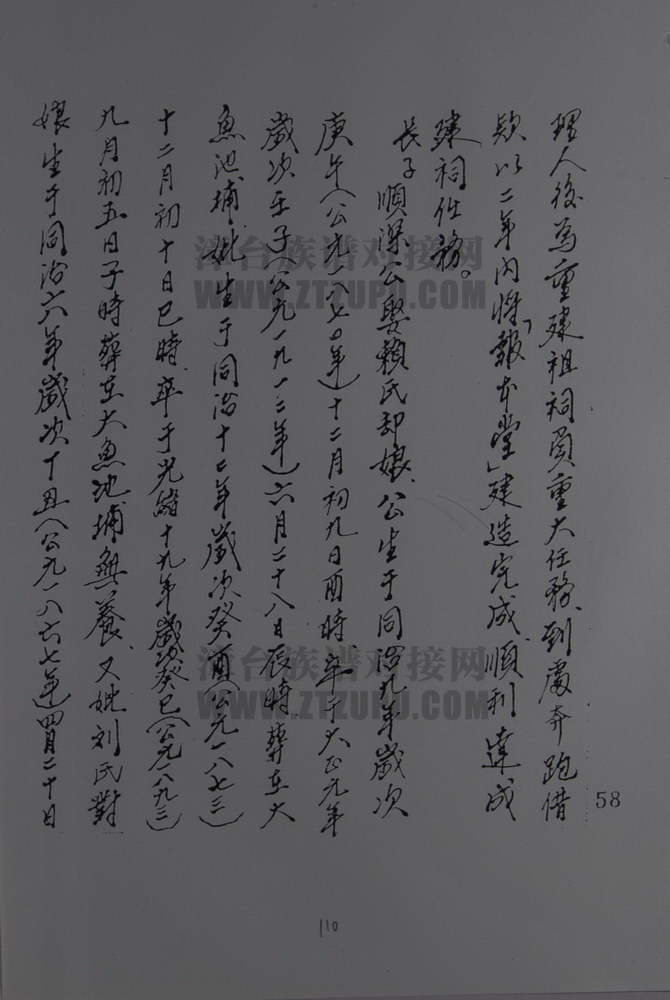 理人後為重建祖祠負重大任務到處奔跑借
欵以二年內將「報本堂」建造完成順利達成
建祠任務。
長子順深公娶賴氏却娘、公生于同治九年歲次
庚午(公元一八七0年)十二月初九日酉時、卒于大正元年
歲次壬子(公元一九一二年)六月二十八日辰時葬在大
魚池埔、妣生于同治十二年歲次癸酉(公元一八七三)
十二月初十日巳時、卒于光緒十九年歲次癸巳(公元一八九三)
九月初五日子時葬在大魚池埔無養、又妣刘氏對
娘生于同治六年歲次丁丑(公元一八六七年)四月二十日
58
110
漳台族谱对接网
WWW.ZTZUPU.COM
漳台族谱对接网
WWW.ZTZUPU.COM